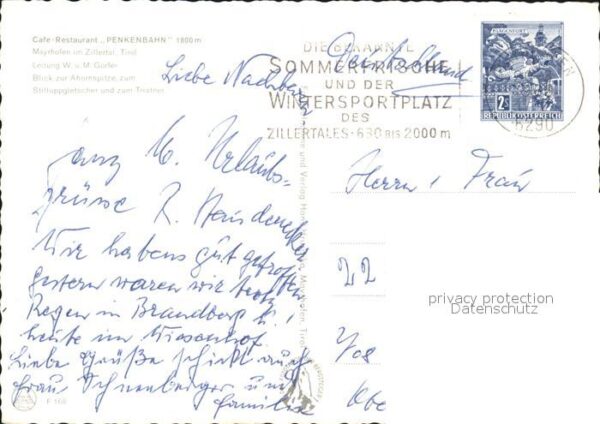 Cafe-Restaurant „PENKENBAHN" 1800 m
Mayrhofen im Zillertal, Tirol
Leitung W. u. M. Gürler
Blick zur Ahornspitze, zum
Stilluppgletscher und zum Tristner
DIE BEKANNTE
SOMMERFRISCHE
UND DER
WINTERSPORTPLATZ
DES
ZILLERTALES · 630 BIS 2000 m
Deutschland
KLAGENFURT
2
S
REPUBLIK ÖSTERREICH
6290
Liebe Nachbarn
Ganz l. Urlaubs-
grüsse
Wir habens gut getroffen
gestern waren wir trotz
Regen in Brandberg u.
heute im Wiesenhof.
Liebe Grüße schickt auch
Frau Schneeberger und
Familie
Herrn u Frau
22
privacy protection
Datenschutz
F 168